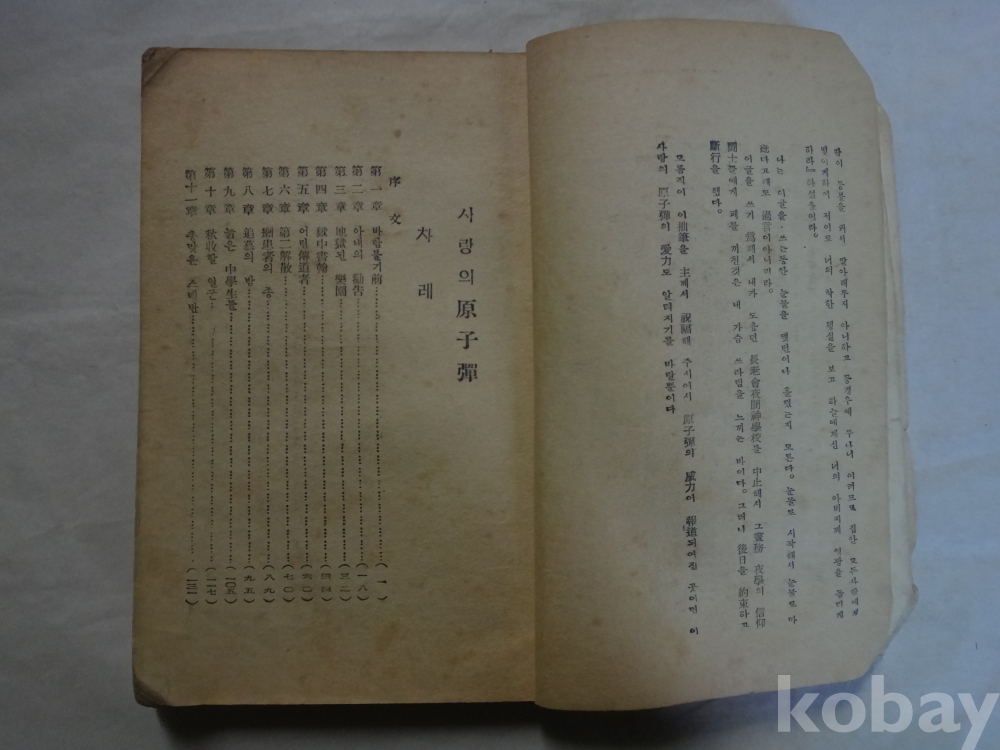 밤이 등불을 켜서 말아래두지 아니하고 등경우에 두나니 이러므로 집안 모든사람에게
빛이게하이 저이도 너의 착한 행실을 보고 하늘에게신 너의 아버지께 영광을 돌리게
하라』하셨음이라。
나는 이글을 쓰는동안 눈물을 몇번이나 흘렸는지 모른다。 눈물로 시작해서 눈물로 마
쳤다고해도 過言이아니리라。
이글을 쓰기 爲해서 내가 도읍던 長老會夜間神學校를 中止해서 그 夜學의 信仰
鬪士들에게 폐를 끼친것은 내 가슴 쓰라림을 느끼는 바이다。 그러나 後日을 約束하고
斷行을 했다。
모름지이 이拙筆을 主께서 祝福해 주시어서 原子彈의 威力이 報道되여진 곳이면 이
사랑의 原子彈의 愛力도 알려지기를 바랄뿐이다
사랑의 原子彈
차레
序文
第一章 바람불기前 (一)
第二章 아내의 勸告 (一八)
第三章 地獄된 樂園 (三二)
第四章 獄中書翰 (四四)
第五章 어린傳道者 (六〇)
第六章 第二解放 (七〇)
第七章 癩患者의 종 (八九)
第八章 追慕의 밤 (九五)
第九章 늙은 中學生들 (一〇五)
第十章 秋收할 일군 (一一七)
第十一章 죽임은 스데반
kobay